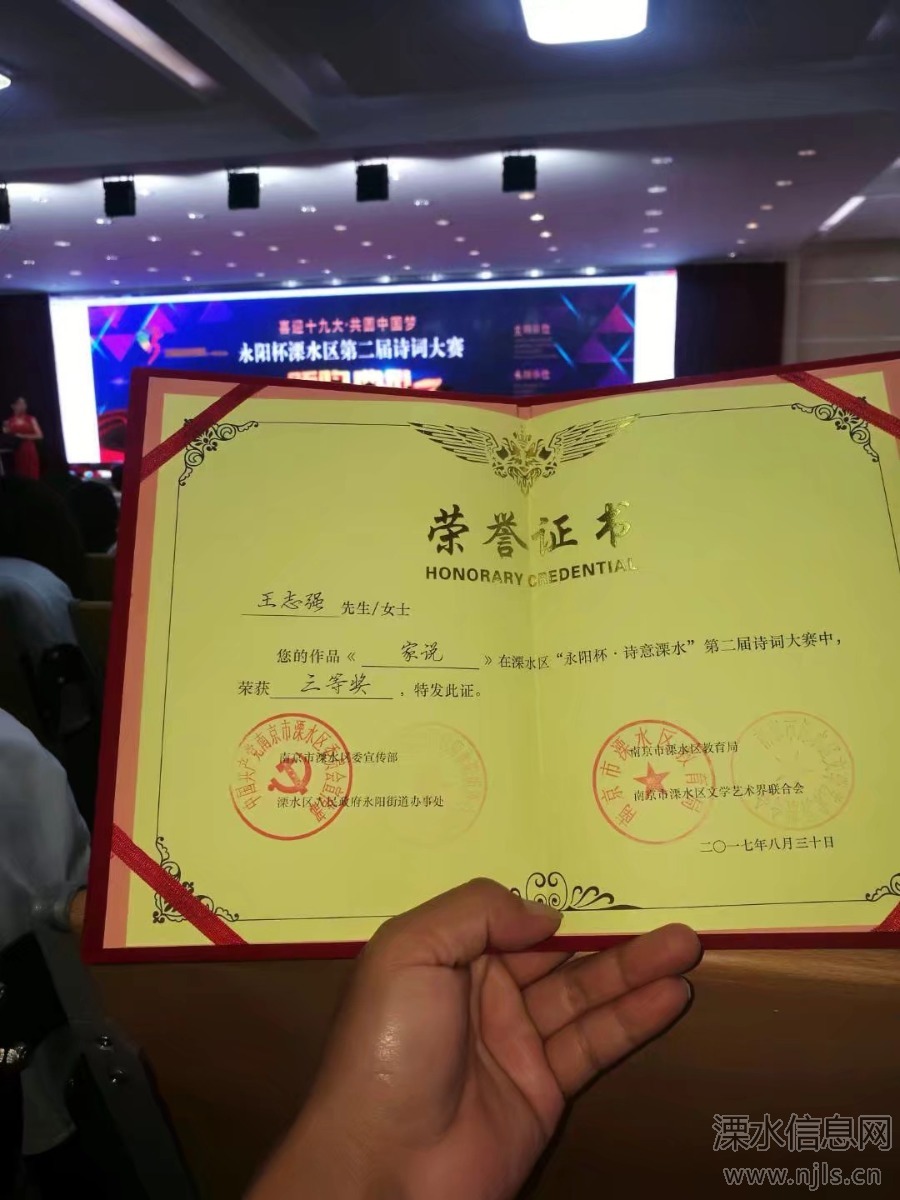 喜迎十九大·共圆中国梦
永阳杯溧水区第二届诗词大赛
荣誉证书
HONORARY CREDENTIAL
王志强 先生/女士
您的作品《 家说 》在溧水区“永阳杯·诗意溧水”第二届诗词大赛中，
荣获 三等奖 ，特发此证。
南京市溧水区委宣传部
南京市溧水区教育局
溧水区人民政府永阳街道办事处
南京市溧水区文学艺术界联合会
中国共产党南京市溧水区委员会宣传部
南京市溧水区教育局
二〇一七年八月三十日
溧水信息网
www.njls.cn